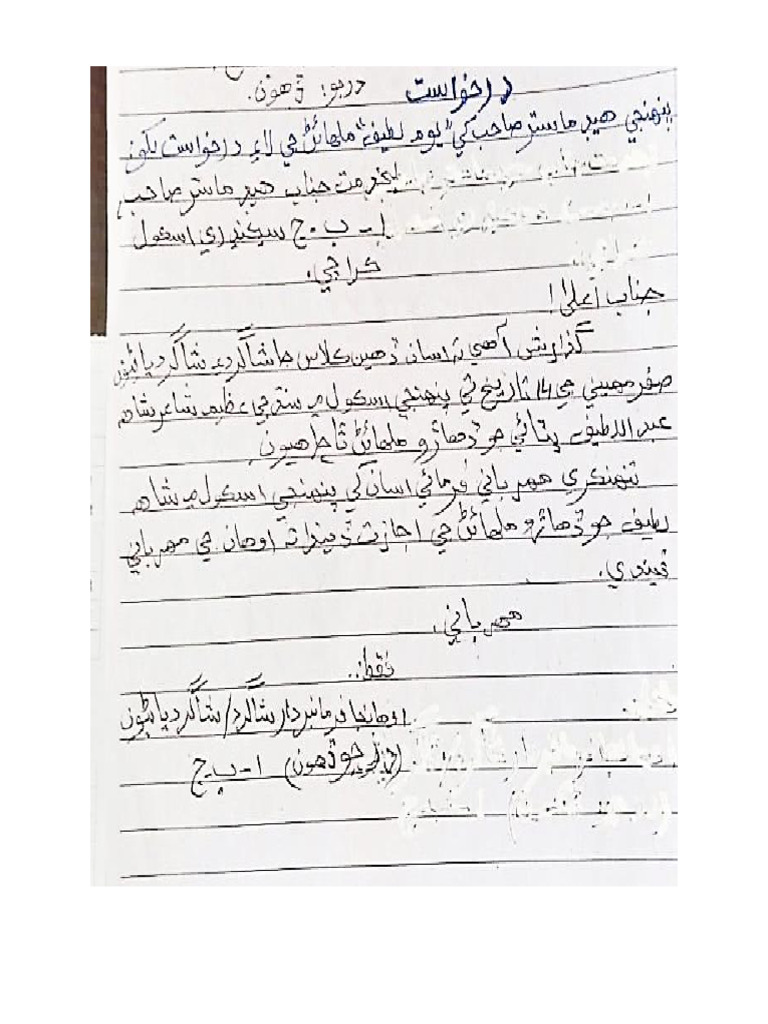 درخواست درجو: ڏهون.
پنهنجي هيڊ ماستر صاحب کي "يوم لطيف" ملهائڻ جي لاءِ درخواست لکو.
بخدمت جناب هيڊ ماستر صاحب
ا - ب - ج سيڪنڊري اسڪول
ڪراچي.
جناب اعليٰ!
گذارش آهي ته اسان ڏهين ڪلاس جا شاگرد ۽ شاگردياڻيون
صفر مهيني جي 14 تاريخ تي پنهنجي اسڪول ۾ سنڌ جي عظيم شاعر شاهه
عبداللطيف ڀٽائي جو ڏهاڙو ملهائڻ ٿا چاهيون.
تنهنڪري مهرباني فرمائي اسان کي پنهنجي اسڪول ۾ شاهه
لطيف جو ڏهاڙو ملهائڻ جي اجازت ڏيندا ته اوهان جي مهرباني
ٿيندي.
مهرباني.
فقط.
اوهانجا فرمانبردار شاگرد/شاگردياڻيون
ا - ب - ج